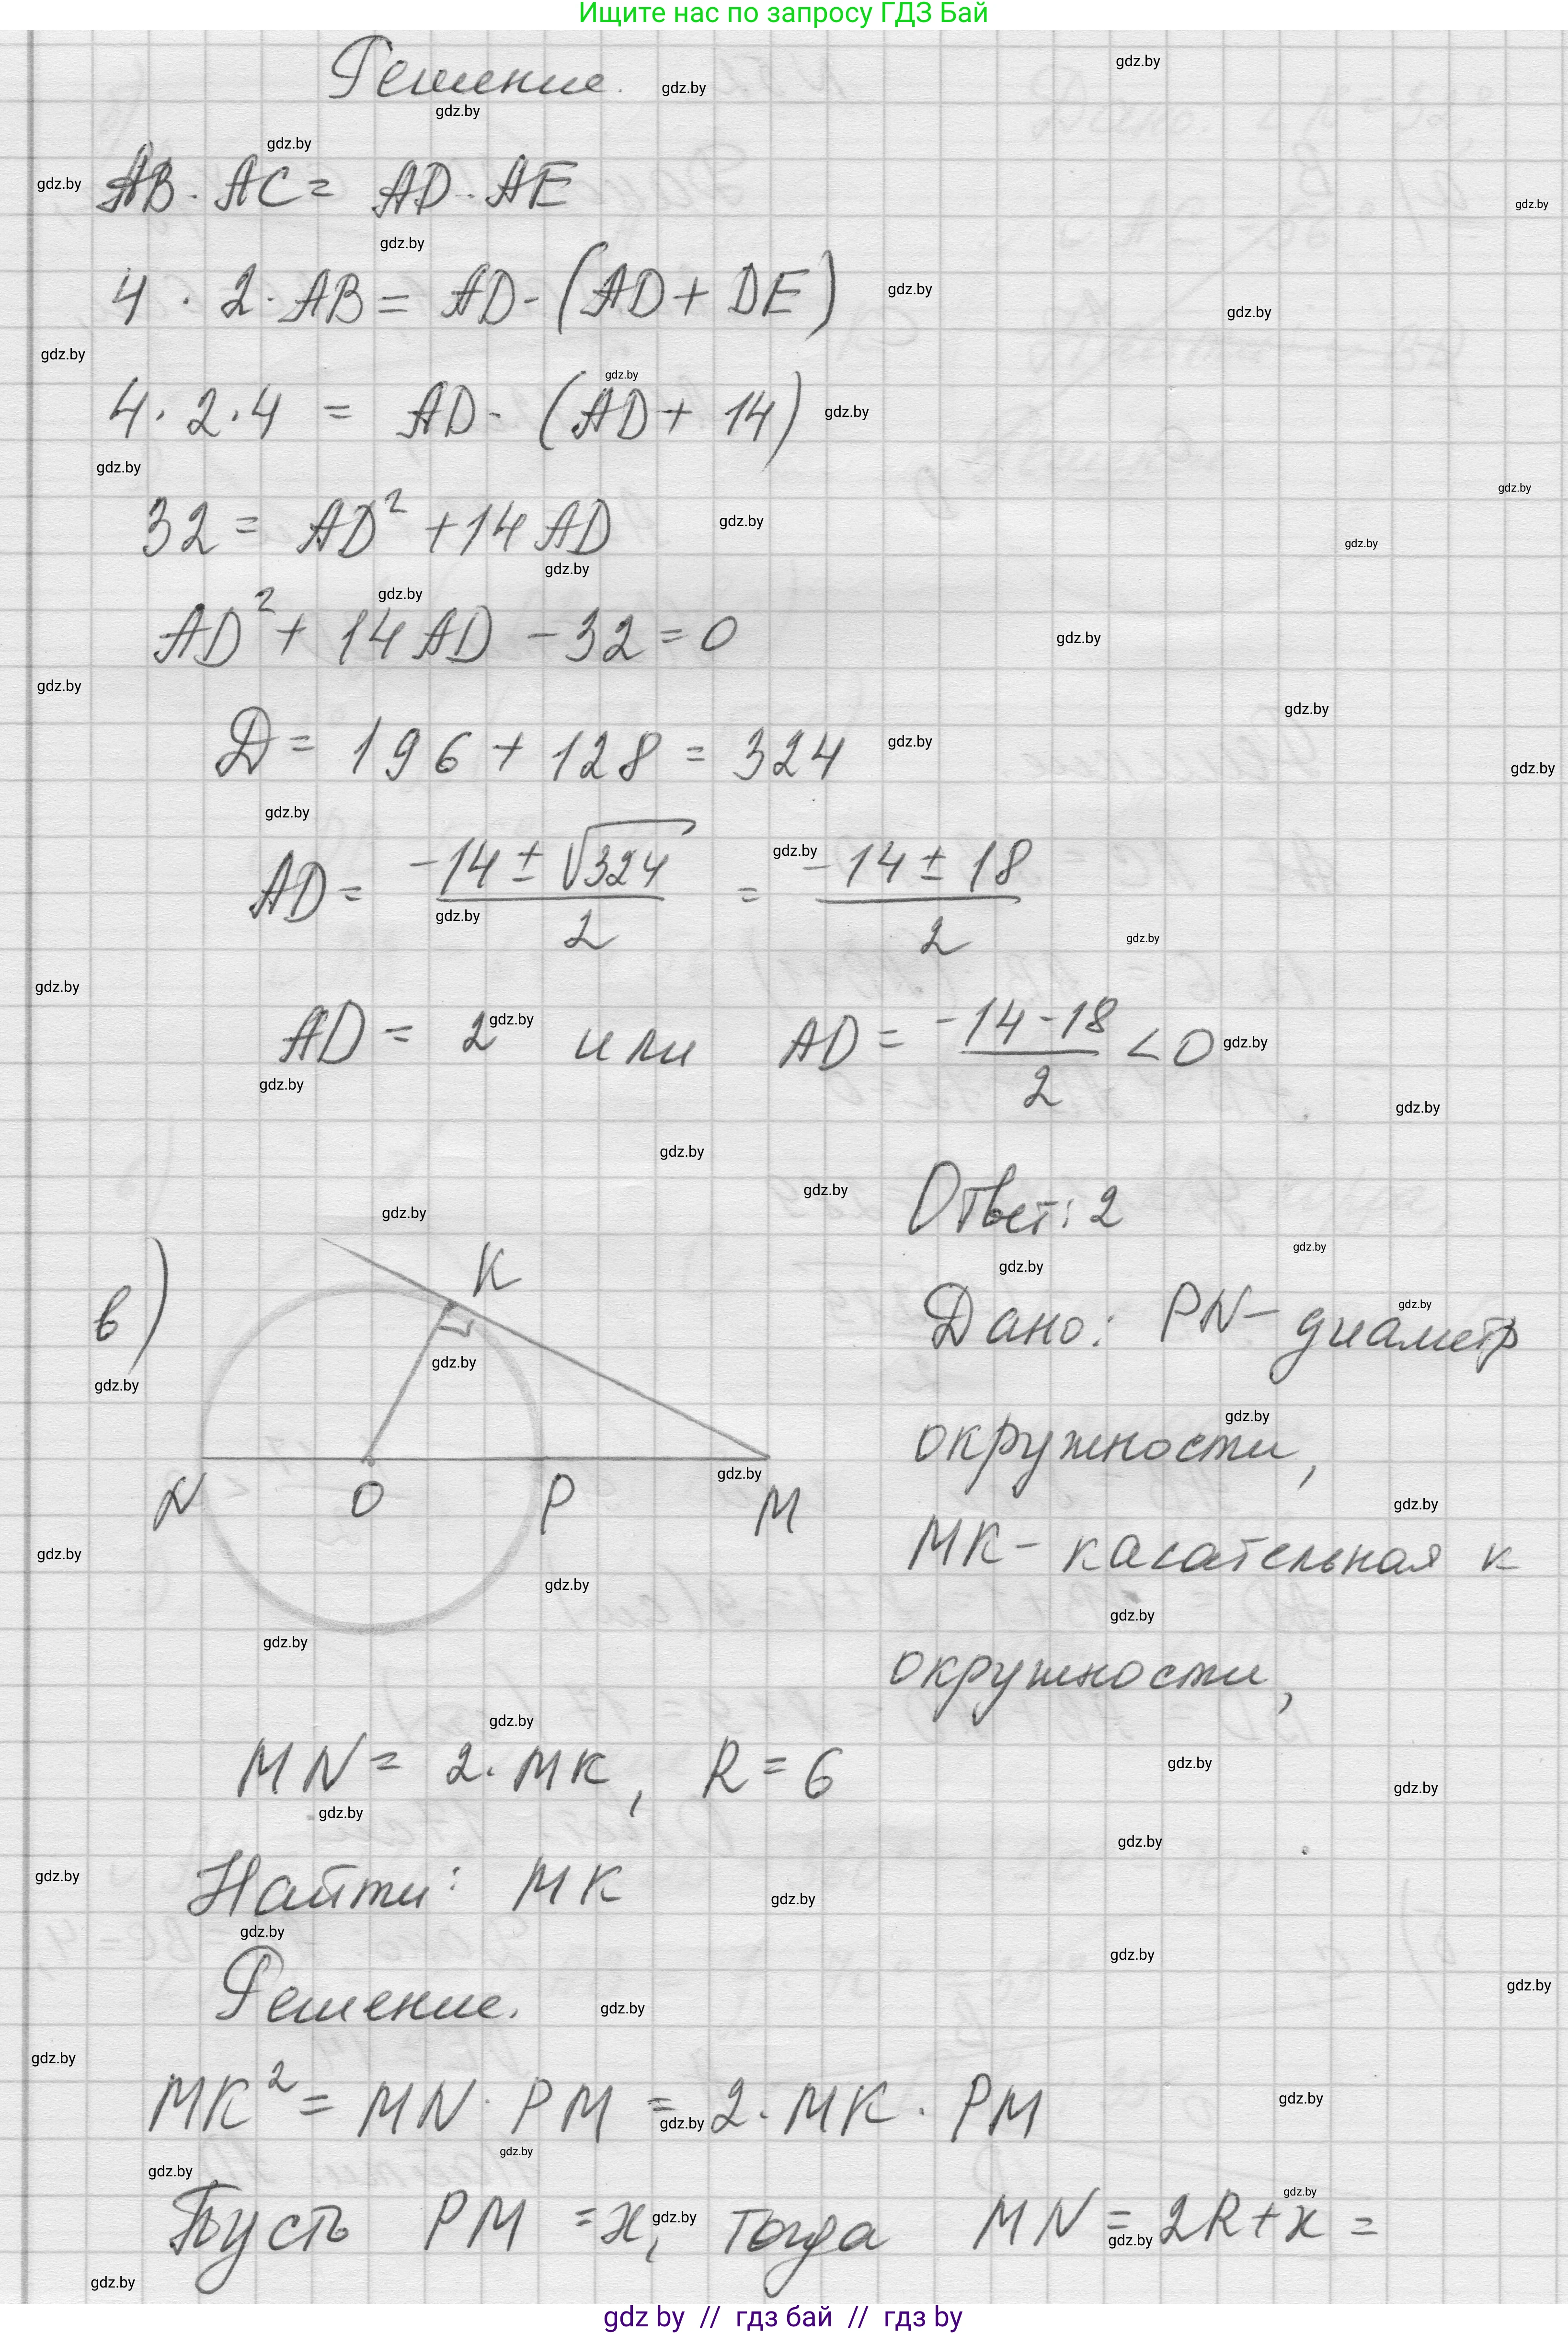 Ищите нас по запросу ГДЗ Бай
Решение.
AB · AC = AD · AE
4 · 2 · AB = AD · (AD + DE)
4 · 2 · 4 = AD · (AD + 14)
32 = AD² + 14 AD
AD² + 14 AD - 32 = 0
D = 196 + 128 = 324
AD = (-14 ± √324)/2 = (-14 ± 18)/2
AD = 2 или AD = (-14-18)/2 < 0
Ответ: 2
в)
K
N O P M
Дано: PN - диаметр
окружности,
MK - касательная к
окружности,
MN = 2 · MK, R = 6
Найти: MK
Решение.
MK² = MN · PM = 2 · MK · PM
Пусть PM = x, тогда MN = 2R + x =
gdz by // гдз бай // гдз by